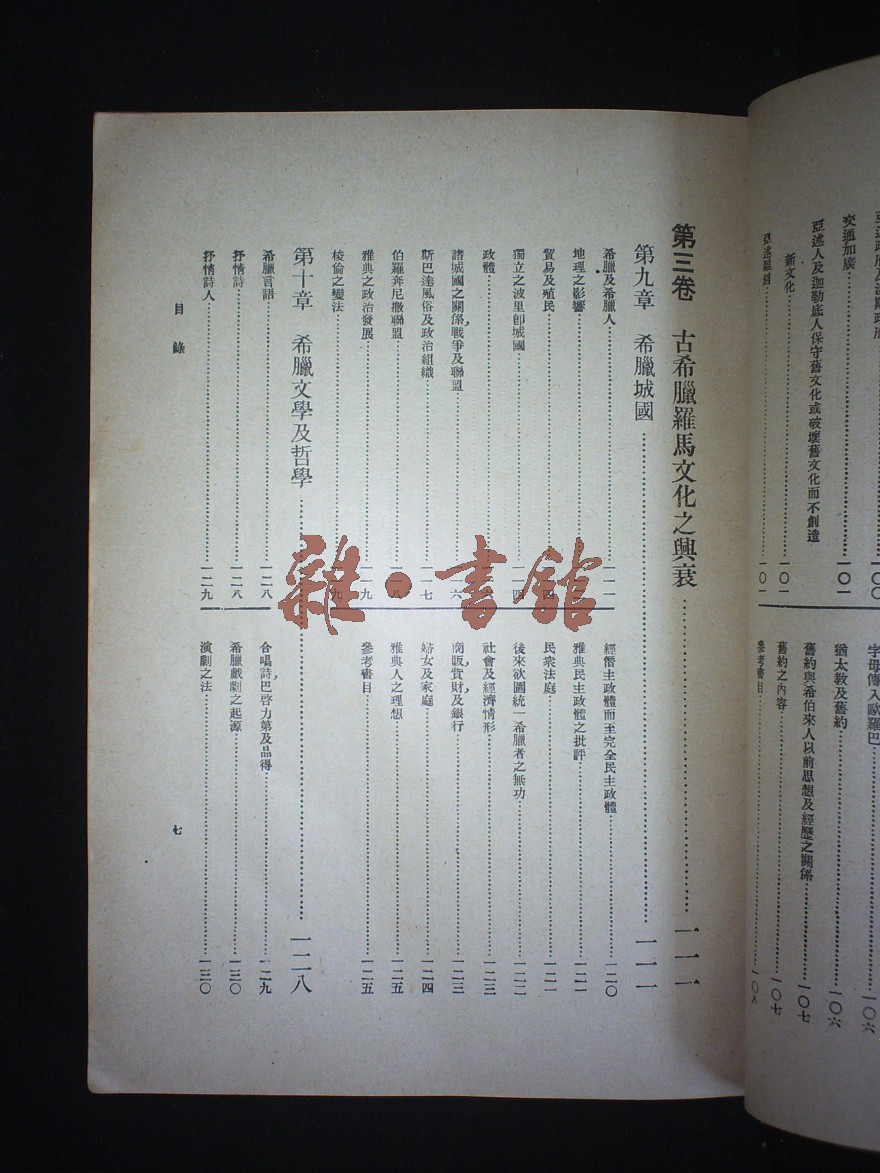 交通加廣……一〇一
亞述人及迦勒底人保守舊文化或破壞舊文化而不創造
新文化……一〇一
字母傳入歐羅巴……一〇六
猶太教及舊約……一〇六
舊約與希伯來人以前思想及經歷之關係……一〇七
舊約之內容……一〇七
參考書目……一〇八
第三卷 古希臘羅馬文化之興衰……一一一
第九章 希臘城國……一一一
希臘及希臘人……一一一
地理之影響
貿易及殖民
獨立之波里卽城國
政體
諸城國之關係,戰爭及聯盟
斯巴達風俗及政治組織……一一七
伯羅奔尼撒聯盟……一一八
雅典之政治發展……一一九
梭倫之變法
經僭主政體而至完全民主政體……一二〇
雅典民主政體之批評……一二一
民衆法庭……一二一
後來欲圖統一希臘者之無功……一二二
社會及經濟情形……一二三
商販,貲財,及銀行……一二三
婦女及家庭……一二四
雅典人之理想……一二五
參考書目……一二五
第十章 希臘文學及哲學……一二八
希臘言語……一二八
抒情詩……一二八
抒情詩人……一二九
合唱詩,巴啓力第及品得……一二九
希臘戲劇之起源……一三〇
演劇之法……一三〇
目錄
七
雜·書館